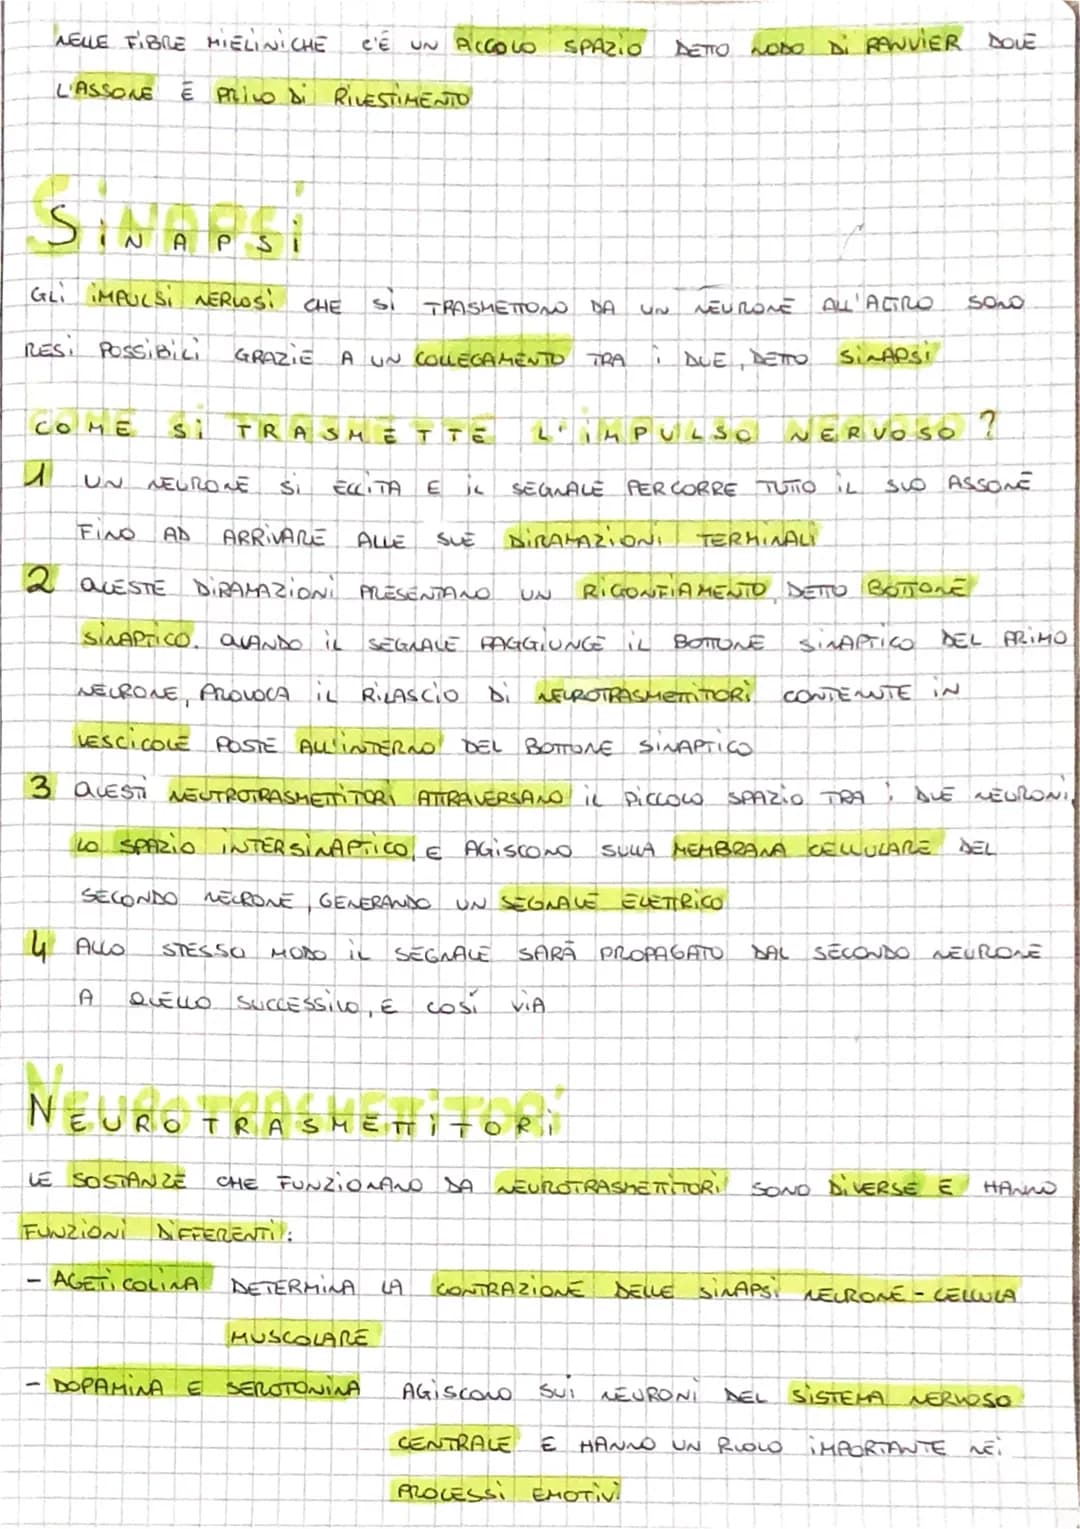 NELLE FIBRE MIELINICHE C'È UN PICCOLO SPAZIO DETTO NODO DI RANVIER DOVE
L'ASSONE È PRIVO DI RIVESTIMENTO
SINAPSI
GLI IMPULSI NERVOSI CHE SI TRASMETTONO DA UN NEURONE ALL'ALTRO SONO
RESI POSSIBILI GRAZIE A UN COLLEGAMENTO TRA I DUE, DETTO SINAPSI
COME SI TRASMETTE L'IMPULSO NERVOSO?
1 UN NEURONE SI ECCITA E IL SEGNALE PERCORRE TUTTO IL SUO ASSONE
FINO AD ARRIVARE ALLE SUE DIRAMAZIONI TERMINALI
2 QUESTE DIRAMAZIONI PRESENTANO UN RIGONFIAMENTO, DETTO BOTTONE
SINAPTICO. QUANDO IL SEGNALE RAGGIUNGE IL BOTTONE SINAPTICO DEL PRIMO
NEURONE, PROVOCA IL RILASCIO DI NEUROTRASMETTITORI CONTENUTE IN
VESCICOLE POSTE ALL'INTERNO DEL BOTTONE SINAPTICO
3 QUESTI NEUTROTRASMETTITORI ATTRAVERSANO IL PICCOLO SPAZIO TRA I DUE NEURONI,
LO SPAZIO INTERSINAPTICO, E AGISCONO SULLA MEMBRANA CELLULARE DEL
SECONDO NEURONE, GENERANDO UN SEGNALE ELETTRICO
4 ALLO STESSO MODO IL SEGNALE SARÀ PROPAGATO DAL SECONDO NEURONE
A QUELLO SUCCESSIVO, E COSÍ VIA
NEUROTRASMETTITORI
LE SOSTANZE CHE FUNZIONANO DA NEUROTRASMETTITORI SONO DIVERSE E HANNO
FUNZIONI DIFFERENTI:
- ACETICOLINA DETERMINA LA CONTRAZIONE DELLE SINAPSI NEURONE-CELLULA
MUSCOLARE
- DOPAMINA E SEROTONINA AGISCONO SUI NEURONI DEL SISTEMA NERVOSO
CENTRALE E HANNO UN RUOLO IMPORTANTE NEI
PROCESSI EMOTIVI